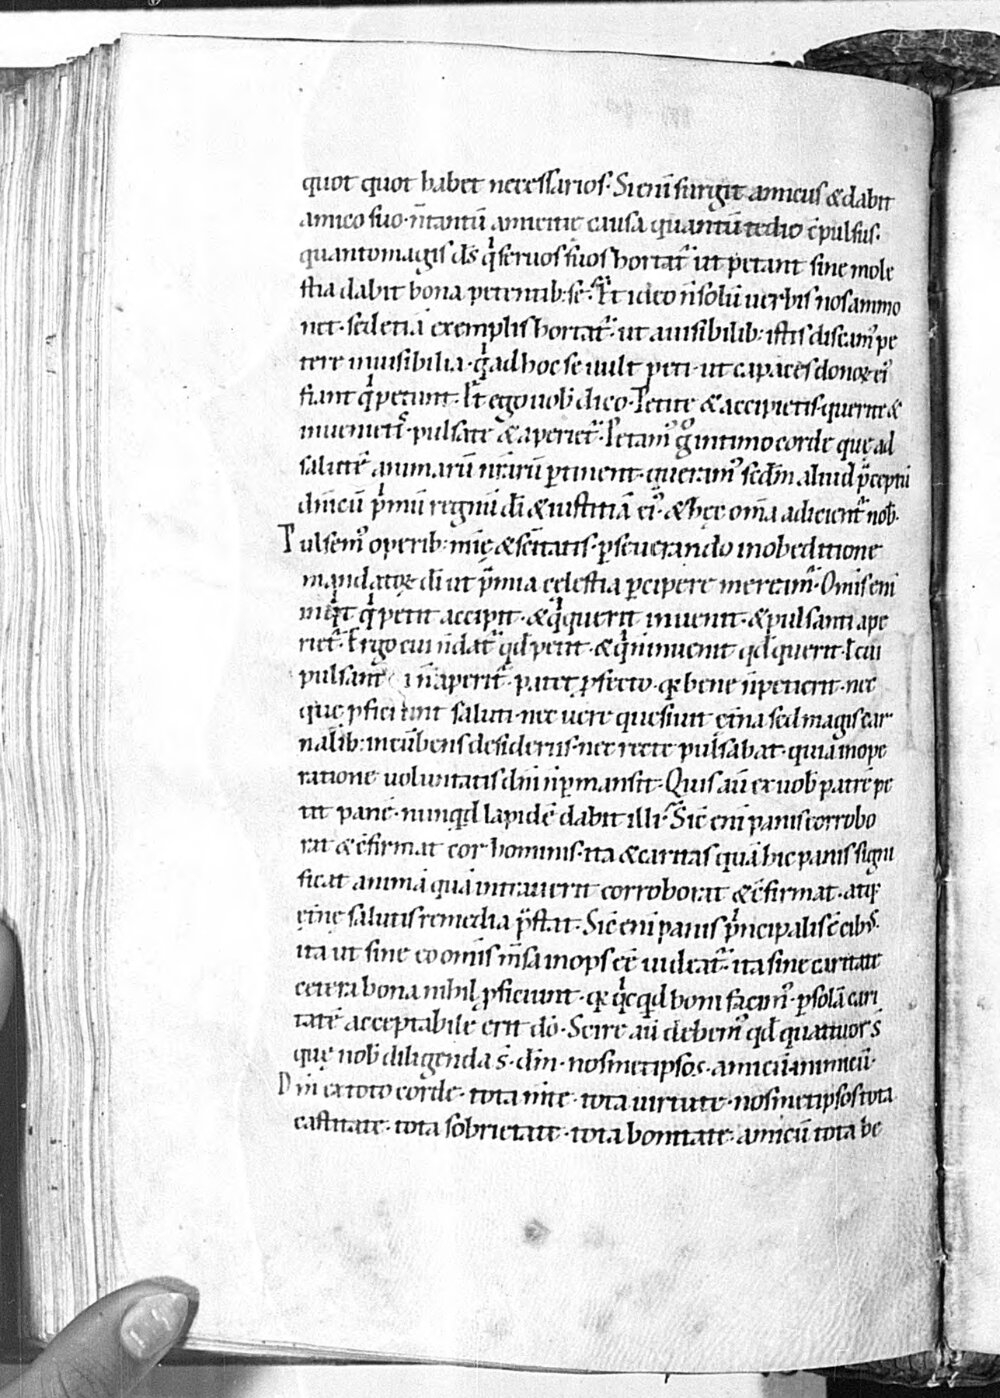 quot quot habet necessarios. Sic enī surgit amicus & dabit
amico suo. n̄ tantū amicitię causa quantū tedio c̄pulsus.
quanto magis d̄s qͥ seruos suos hortat᷑ ut petant sine mole
stia dabit bona petentib; se. Et ideo n̄ solū uerbis nos ammo
net. sed etiā exemplis hortat᷑. ut a uisibilib; istis discam᷒ pe
tere inuisibilia. qͥ ad hoc se uult peti. ut capaces donoꝝ ei᷒
fiant qͥ petunt. Et ego uob̄ dico. Petite & accipietis. querite &
inueniet᷑. pulsate & aperiet᷑. Petam᷒ gͦ intimo corde quę ad
salutē animarū nr̄arū ꝑtinent. queram᷒ scd̄m aliud p̄ceptū
dn̄icū pͥmū regnū dī & iustitiā ei᷒. & hęc om̄a adicient᷑ nob̄.
Pulsem᷒ operib; mīę & sc̄itatis. ꝑseuerando in obeditione
mandatoꝝ dī ut p̄mia celestia ꝑcipere meream᷑. Om̄is enī
inqͥt qͥ petit accipit. & qͥ querit inuenit. & pulsanti ape
riet᷑. Ergo cui n̄ dat᷑ qd̄ petit. & qͥ n̄ inuenit qd̄ querit. ł cui
pulsanti n̄ aperit᷑. patet ꝓfecto. qꝛ bene n̄ petierit. nec
quę ꝓficiunt saluti. nec uere quesiuit ęt̄na sed magis car
nalib; incūbens desideriis. nec recte pulsabat. quia in ope
ratione uoluntatis dn̄i n̄ ꝑmansit. Quis aū ex uob̄ patrē pe
tit panē. nunqd̄ lapidē dabit illi. Sic̄ enī panis corrobo
rat & c̄firmat cor hominis. ita & caritas quā hic panis signi
ficat animā quā intrauerit corroborat & c̄firmat. atq;
ęt̄nę salutis remedia p̄stat. Sic̄ enī panis pͥncipalis ē cib᷒.
ita ut sine eo om̄is m̄sa inops eē uideat᷑. ita sine caritate
cetera bona nihil ꝓficiunt. qꝛ qͥcqd̄ boni facim᷒. ꝑ solā cari
tatē acceptabile erit dō. Scire aū debem᷒ qd̄ quattuor s̄
quę nob̄ diligenda s̄. dn̄m. nosmetipsos. amicū. inimicū.
Dn̄m ex toto corde. tota m̄te. tota uirtute. nosmetipsos tota
castitate. tota sobrietate. tota bonitate. amicū tota be